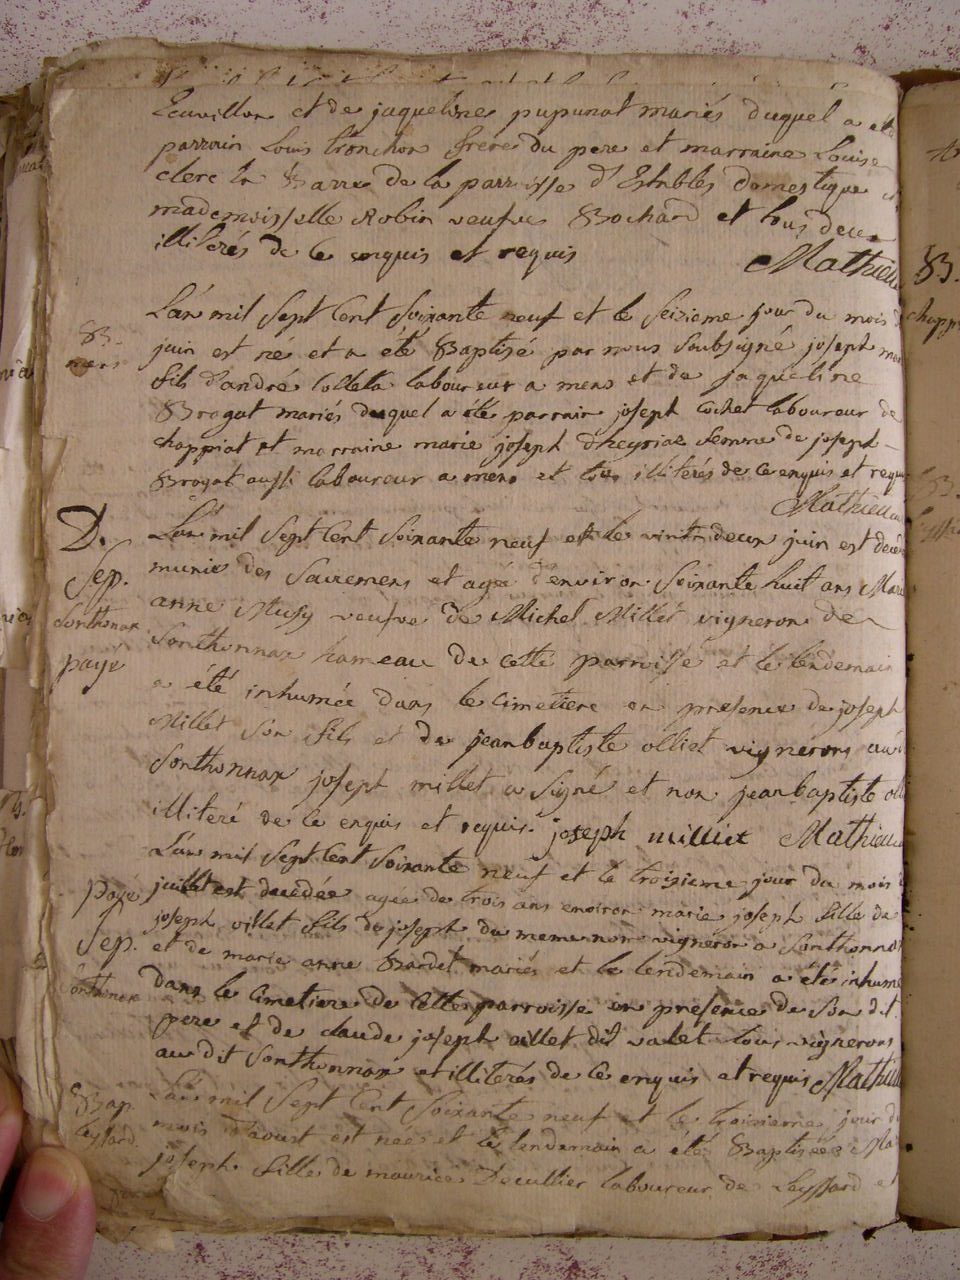 et de jaqueline pupunat mariés duquel a été
parrain Louis tronchon frere du pere et marraine Louise
clerc la Barre de la parroisse d'Estables domestique
mademoisselle Robin veufve Bochard et tous deux
illiterés de ce enquis et requis Mathieu
B.
mens
L'an mil sept cent soixante neuf et le seizieme jour du mois
juin est né et a été Baptisé par nous soubsigné joseph
fils d'andré Colleta laboureur a mens et de jaqueline
Brogat mariés duquel a été parrain joseph Cochet laboureur de
chappiat et marraine marie joseph femme de joseph
Brogat aussi laboureur a mens et tous illiterés de ce enquis et requis
Mathieu
D.
Sep.
Sonthonnax
payé
L'an mil sept cent soixante neuf et le vintdeux juin est
munie des sacremens et agée d'environ soixante huit ans Marie
anne Musy veufve de Michel Millet vigneron de
Sonthonnax hameau de cette parroisse et le lendemain
a été inhumée dans le cimetiere en presence de joseph
Millet son fils et de jeanbaptiste olliet vignerons audit
Sonthonnax joseph millet a signé et non jeanbaptiste
illiteré de ce enquis et requis. joseph milliet Mathieu
payé
Sep.
Sonthonnax
L'an mil sept cent soixante neuf et le troisieme jour du mois
juillet est decedée agée de trois ans environ marie joseph fille de
joseph villet fils de joseph du meme nom vigneron a Sonthonnax
et de marie anne Bardet mariés et le lendemain a étés inhumé
dans le cimetiere de cette parroisse en presence de son dit
pere et de claude joseph villet dit valet tous vignerons
au dit Sonthonnax et illiterés de ce enquis et requis Mathieu
Bap.
Leyssard.
L'an mil sept cent soixante neuf et le troisieme jour du
mois d'aoust est née et le lendemain a été Baptisée
joseph fille de maurice Decullier laboureur de Leyssard et